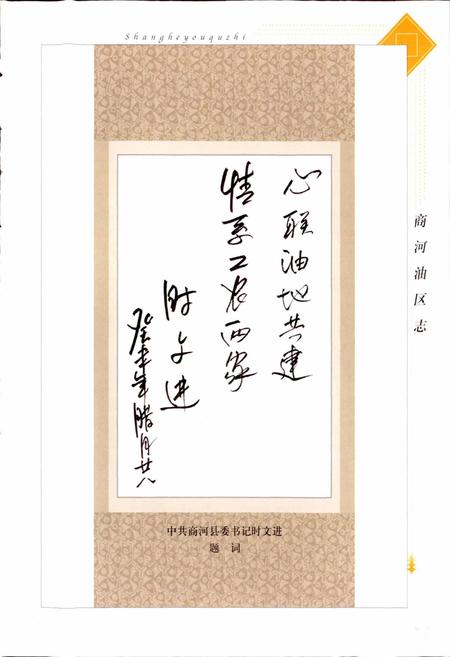 Shangheyouquzhi
商河油区志
心联油地共建
情系工农两家
时文进
癸未年腊月廿八
中共商河县委书记时文进
题 词